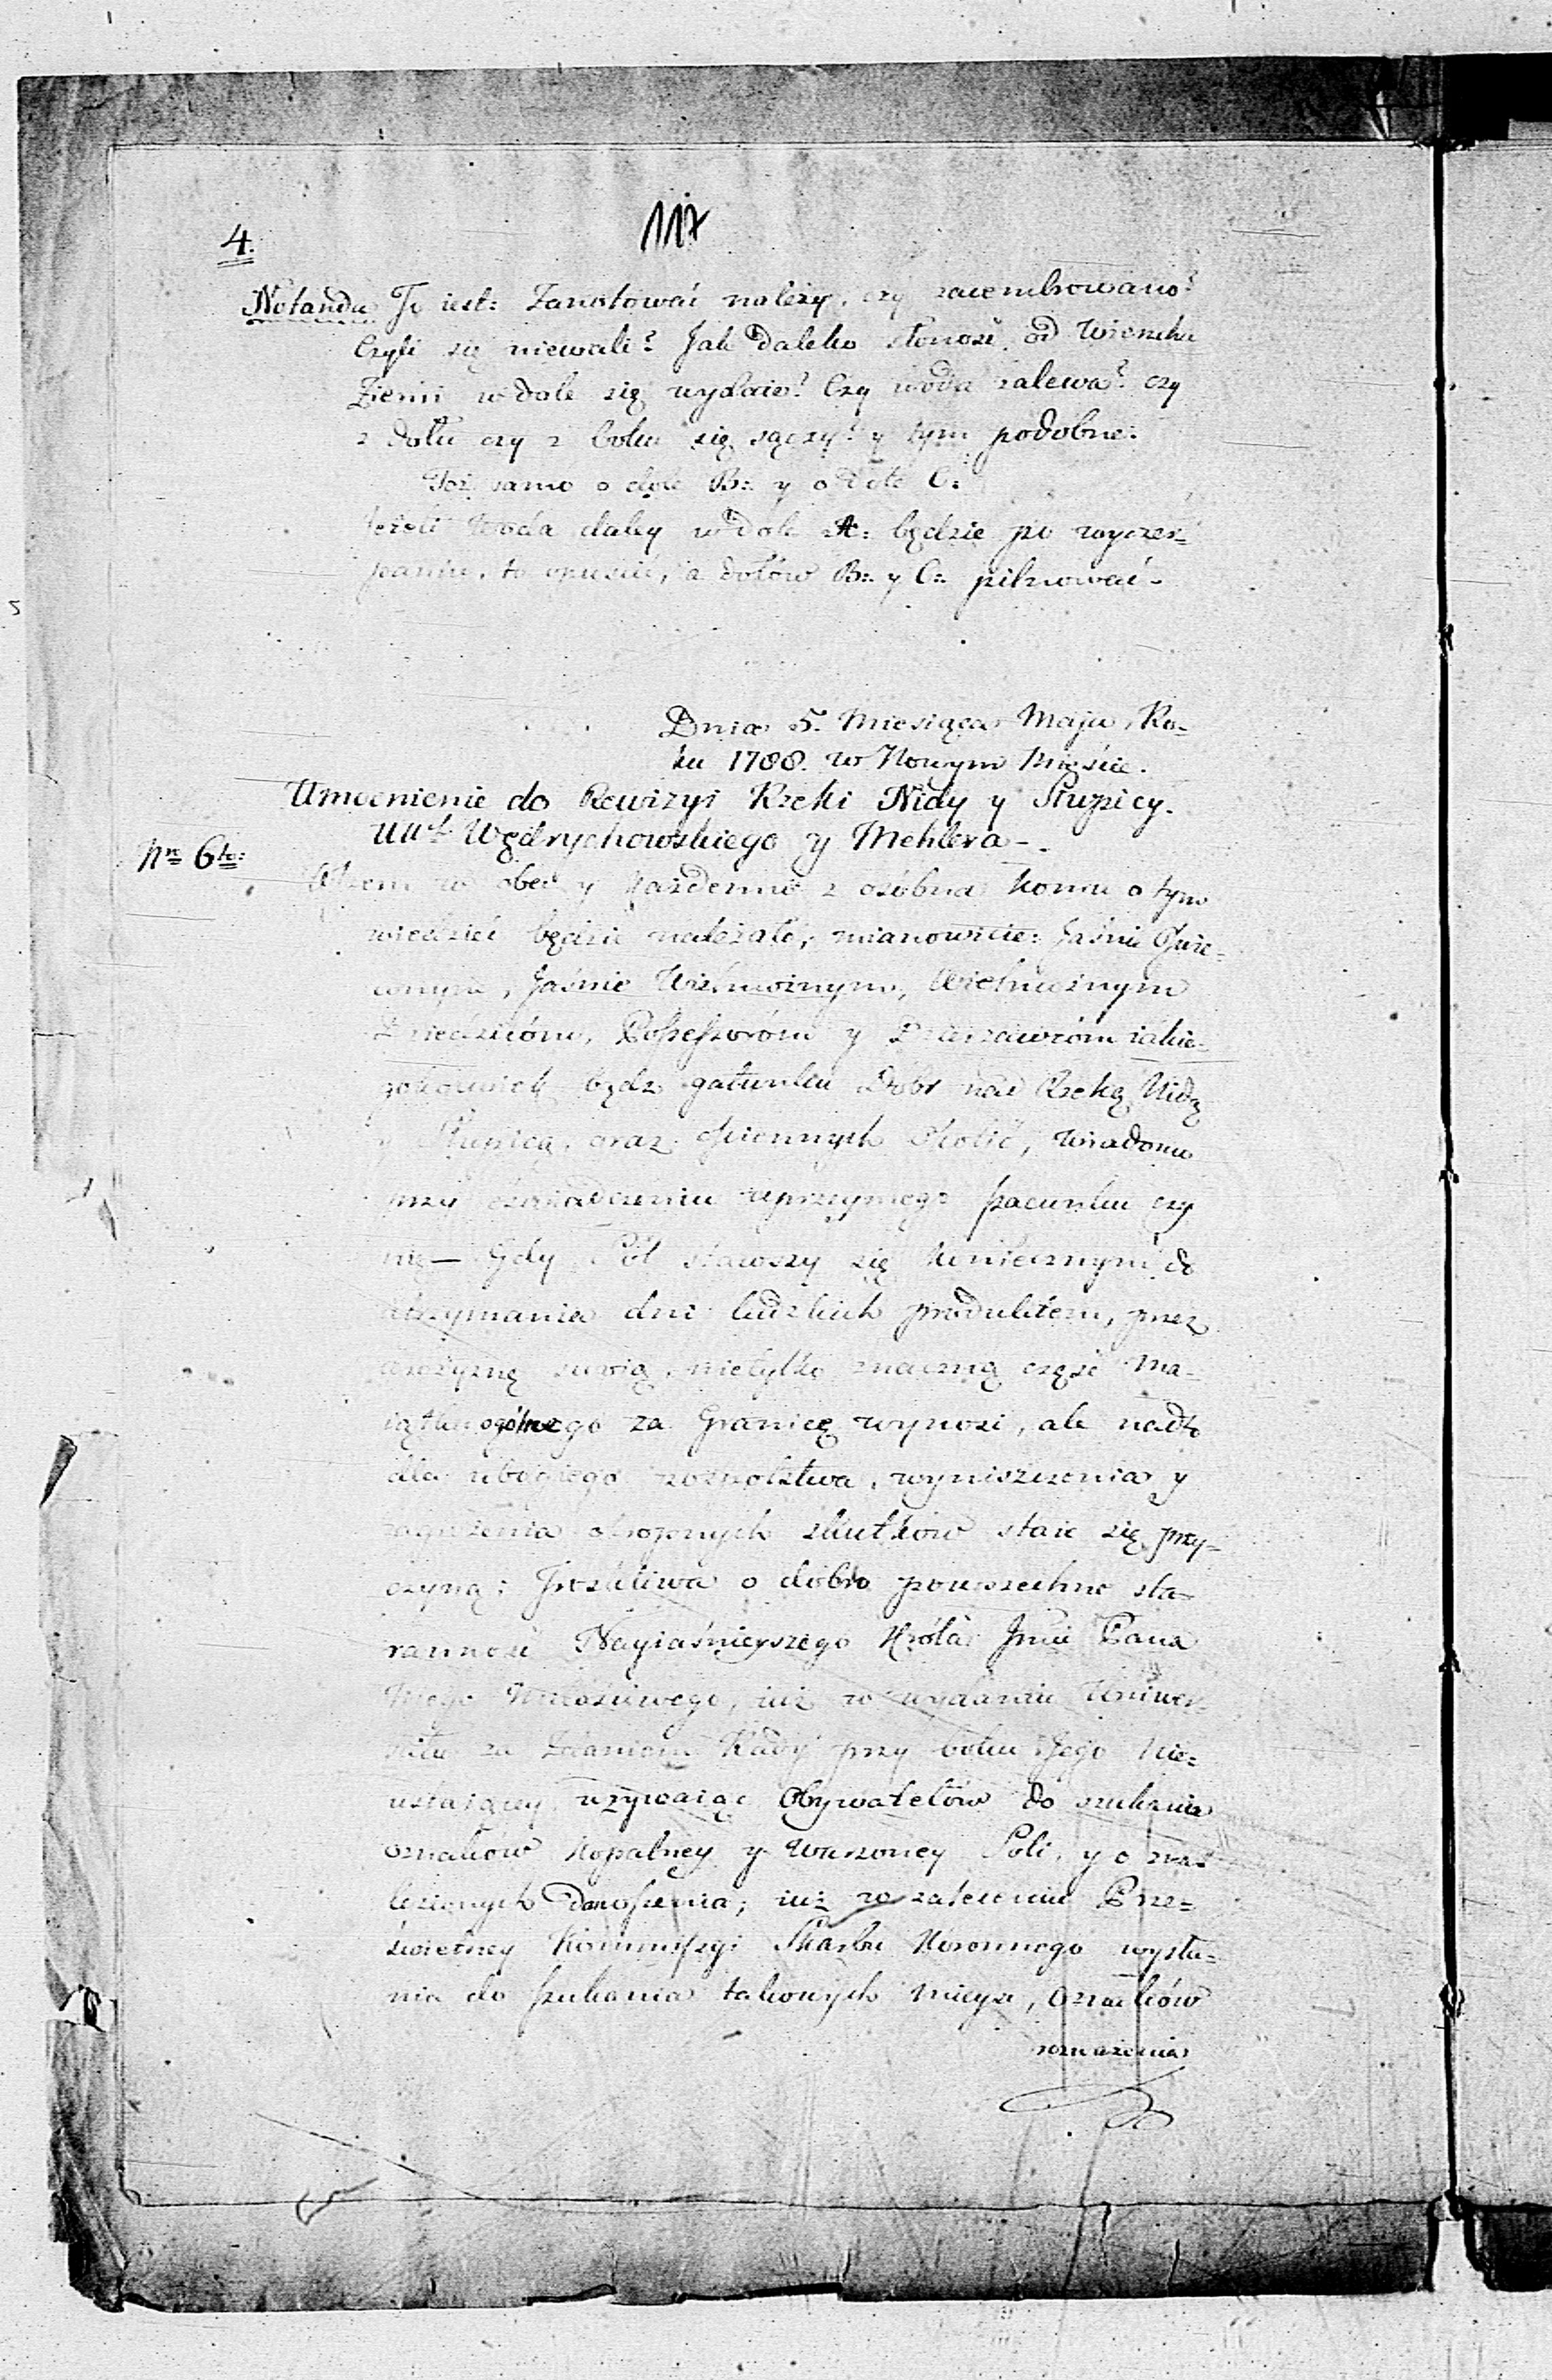 117
4.
Notanda To iest: Zanotować należy, czy zacembrowano?
Czyli się niewali? Jak daleko słoność od wierzchu
Ziemi w dole się wydaie? Czy woda zalewa? czy
z dołu czy z boku się sączy? y tym podobne.
Toż samo o dole B: y o dole C:
Jeżeli woda daley w dole A: będzie po wyczer-
paniu, to opuścić, a dołów B: y C: pilnować.
Dnia 5. Miesiąca Maja, Ro-
ku 1788. w Nowym Mieście.
Umocnienie do Rewizyi Rzeki Nidy y Słupicy.
UU. Wędrychowskiego y Mehlera.
Nro 6to:
Wszem w obec y każdemu z osobna komu o tym
wiedzieć będzie należało, mianowicie: Jaśnie Oświe-
conym, Jaśnie Wielmożnym, Wielmożnym
Dziedzicom, Possessorom y Dzierzawcom iakie-
gokolwiek bądz gatunku Dobr nad Rzeką Nidą
y Słupicą, oraz okolic, wiadomo
przy oświadczeniu uprzeymego szacunku czy
nię — Gdy Sól stawszy się koniecznym do
utrzymania dni ludzkich produktem, przez
swoią, nietylko znaczną część Ma-
iątku ogólnego za Granicę wynosi, ale nadto
dla ubogiego wyniszczenia y
okropnych skutków staie się przy-
czyną; Troskliwa o dobro powszechne sta-
ranność Nayiaśnieyszego Króla Jmci Pana
mego Miłościwego, iuż w wydaniu Uniwer-
sału za zdaniem Rady przy boku Jego Nie-
ustaiącey, wzywaiąc Obywatelów do szukania
oznaków kopalney y warzoney Soli, y o zna-
lezionych donoszenia; iuż w zaleceniu Prze-
świetney Kommissyi Skarbu Koronnego wysła-
nia do szukania takowych mieysc, oznaków